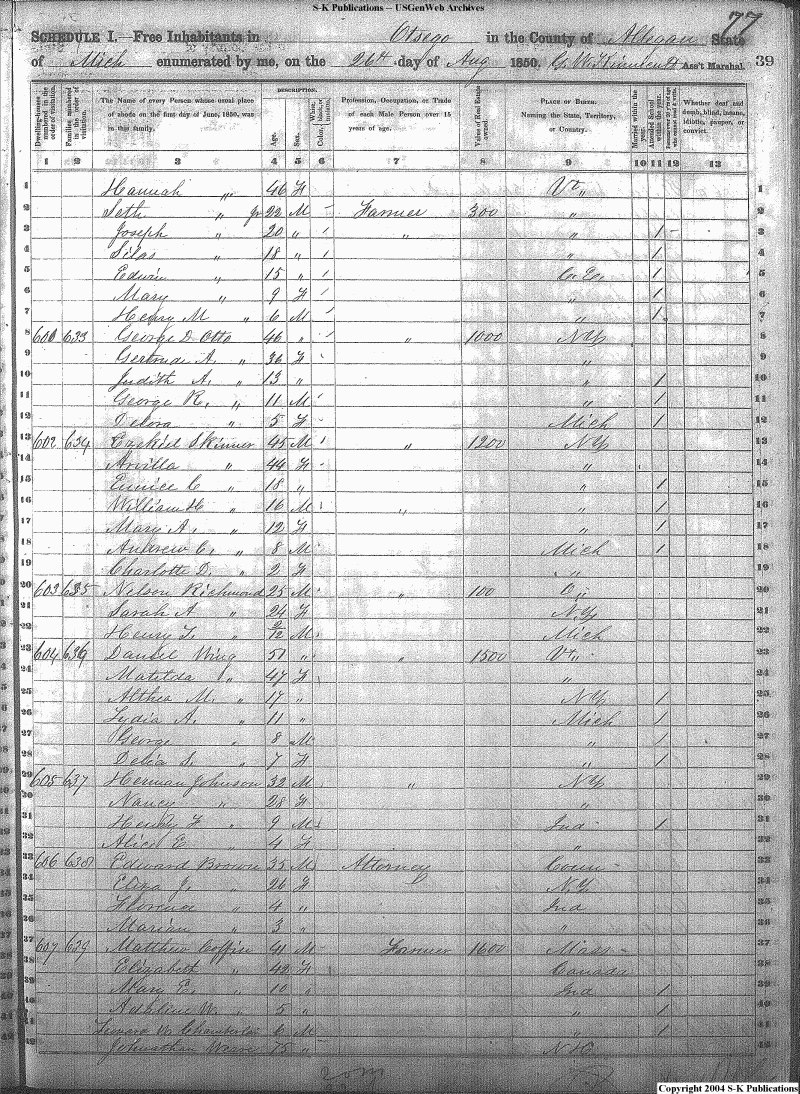 S-K Publications – USGenWeb Archives
77
SCHEDULE I.—Free Inhabitants in Otsego in the County of Allegan State
of Mich enumerated by me, on the 26th day of Aug 1850. Ass't Marshal. 39
Dwelling-houses numbered in the order of visitation. Families numbered in the order of visitation. The Name of every Person whose usual place of abode on the first day of June, 1850, was in this family. DESCRIPTION. Age. Sex. White, black, or mulatto. Color Profession, Occupation, or Trade of each Male Person over 15 years of age. Value of Real Estate owned. PLACE OF BIRTH. Naming the State, Territory, or Country. Married within the year. Attended School within the year. Persons over 20 y'rs of age who cannot read & write. Whether deaf and dumb, blind, insane, idiotic, pauper, or convict.
1 2 3 4 5 6 7 8 9 10 11 12 13
1 Hannah " 46 F Vt 1
2 Seth " Jr 22 M Farmer 300 " 2
3 Joseph " 20 " " " 1 3
4 Silas " 18 " " 1 4
5 Edwin " 15 " 1 5
6 Mary " 9 F " 1 6
7 Henry M " 6 M " 1 7
8 601 633 George D. Otto 46 " " 1000 NY 8
9 Gertrude A. " 36 F " 9
10 Judith A. " 13 " " 1 10
11 George R. " 11 M " 1 11
12 " 5 F Mich 1 12
13 602 634 Ezekiel Skinner 45 M " 1200 NY 13
14 Arvilla " 44 F " 14
15 Eunice C " 18 " " 1 15
16 William H " 16 M " " 1 16
17 Mary A. " 12 F " 1 17
18 Andrew C. " 8 M Mich 1 18
19 Charlotte D. " 2 F " 19
20 603 635 Nelson Richmond 25 M " 100 O 20
21 Sarah A " 24 F N.Y. 21
22 Henry " 2/12 M Mich 22
23 604 636 Daniel Wing 51 " " 1500 Vt 23
24 Matilda " 47 F " 24
25 Althea M. " 17 " NY 1 25
26 Lydia A. " 11 " Mich 1 26
27 George " 8 M " 1 27
28 Delia S. " 7 F " 1 28
29 605 637 Herman Johnson 32 M " NY 29
30 Nancy " 28 F " 30
31 Henry F " 9 M Ind 1 31
32 Alice E " 4 F " 32
33 606 638 Edward Brown 35 M Attorney Conn 33
34 Eliza J. " 26 F N.Y. 34
35 Florence " 4 " Ind 35
36 Marian " 3 " " 36
37 607 639 Matthew Coffin 41 M Farmer 1600 Mass 37
38 Elizabeth " 42 F Canada 38
39 Mary E. " 10 " Ind 1 39
40 Adaline W. " 5 " " 1 40
41 W. Chamberlin 6 M " 1 41
42 Johnathan 75 " N H 42
Copyright 2004 S-K Publications